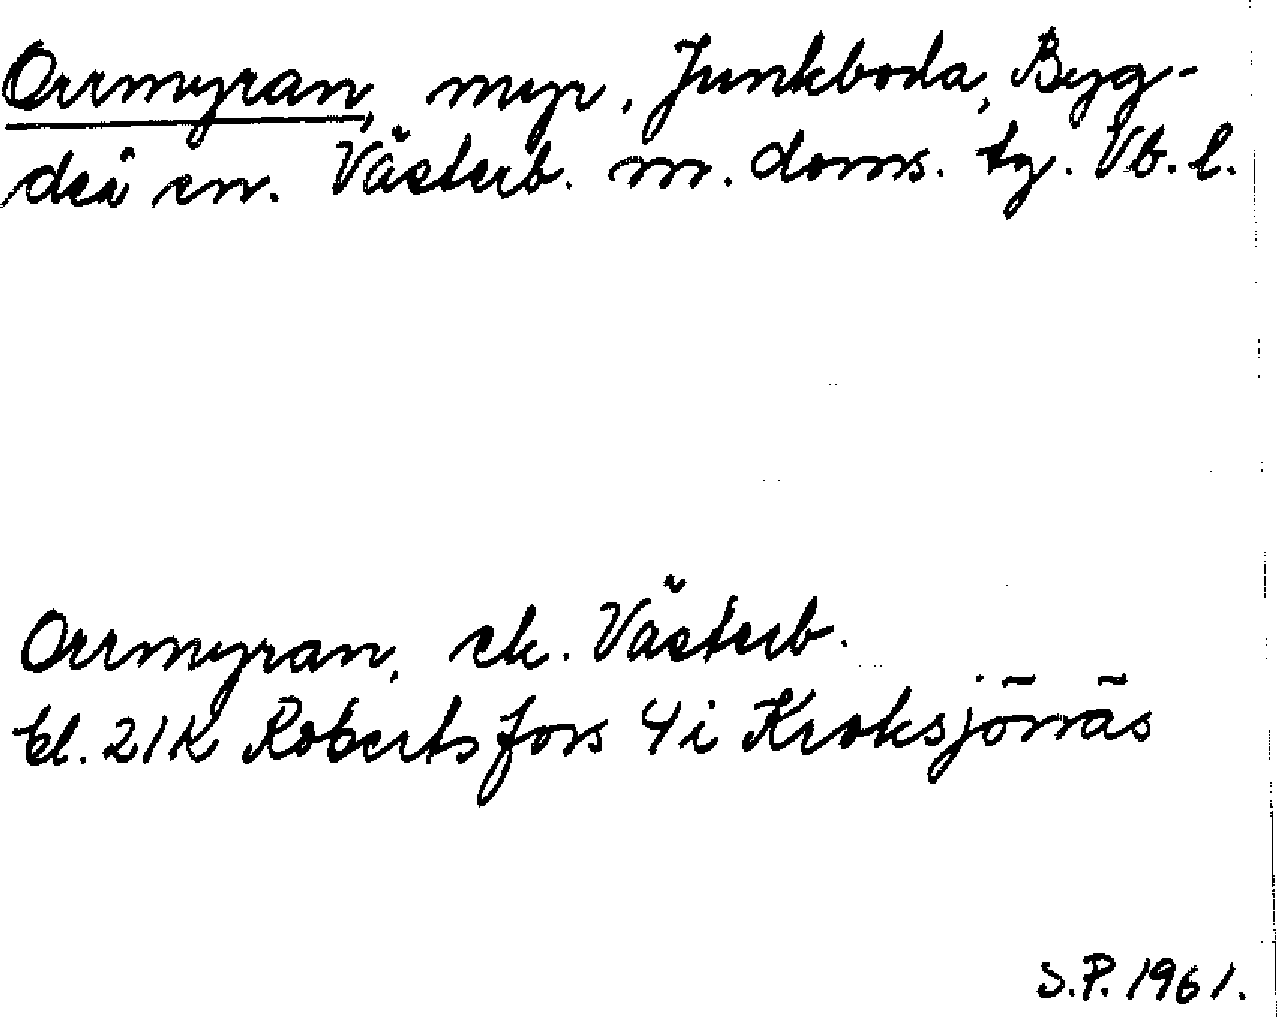 Orrmyran, myr, Junkboda, Byg-
deå sn. Västerb. m. doms. tg. Vb. l.
Orrmyran, ek. Västerb.
bl. 21K Robertsfors 4i Kroksjönäs
S.P. 1961.